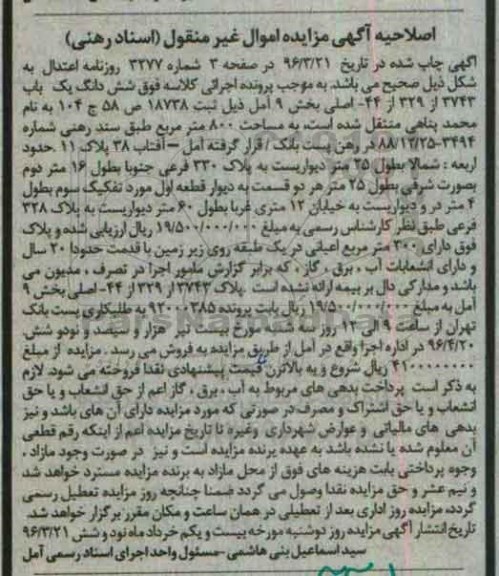 اصلاحیه آگهی مزایده اموال غیر منقول (اسناد رهنی)
آگهی چاپ شده در تاریخ ۹۶/۳/۲۱ در صفحه ۳ شماره ۳۲۷۷ روزنامه اعتدال به
شکل ذیل صحیح می باشد. به موجب پرونده اجرائی کلاسه فوق شش دانگ یک باب
۳۷۴۳ از ۳۲۹ از ۴۴- اصلی بخش ۹ آمل ذیل ثبت ۱۸۷۳۸ ص ۵۸ ج ۱۰۴ به نام
محمد پناهی منتقل شده است، به مساحت ۸۰۰ متر مربع طبق سند رهنی شماره
۳۴۹۴-۸۸/۱۲/۲۵ در رهن پست بانک / قرار گرفته آمل – آفتاب ۳۸ پلاک ۱۱ .حدود
اربعه : شمالا بطول ۲۵ متر دیواریست به پلاک ۳۳۰ فرعی جنوبا بطول ۱۶ متر دوم
بصورت شرقی بطول ۲۵ متر هر دو قسمت به دیوار قطعه اول مورد تفکیک سوم بطول
۴ متر در و دیواریست به خیابان ۱۲ متری غربا بطول ۶۰ متر دیواریست به پلاک ۳۲۸
فرعی طبق نظر کارشناس رسمی به مبلغ ۱۹/۵۰۰/۰۰۰/۰۰۰ ریال ارزیابی شده و پلاک
فوق دارای ۳۰۰ متر مربع اعیانی در یک طبقه روی زیر زمین با قدمت حدودا ۲۰ سال
و دارای انشعابات آب ، برق ، گاز ، که برابر گزارش مامور اجرا در تصرف ، مدیون می
باشد و مدارکی دال بر بیمه ارائه نشده است .پلاک ۳۷۴۳ از ۳۲۹ از ۴۴- اصلی بخش ۹
آمل به مبلغ ۱۹/۵۰۰/۰۰۰/۰۰۰ ریال بابت پرونده ۹۲۰۰۰۳۸۵ به طلبکاری پست بانک
تهران از ساعت ۹ الی ۱۲ روز سه شنبه مورخ بیست تیر هزار و سیصد و نودو شش.
۹۶/۴/۲۰ در اداره اجرا واقع در آمل از طریق مزایده به فروش می رسد . مزایده از مبلغ
ریال شروع و به بالاترین قیمت پیشنهادی نقدا فروخته می شود. لازم
به ذکر است پرداخت بدهی های مربوط به آب ، برق ، گاز اعم از حق انشعاب و یا حق
انشعاب و یا حق اشتراک و مصرف در صورتی که مورد مزایده دارای آن های باشد و نیز
بدهی های مالیاتی و عوارض شهرداری وغیره تا تاریخ مزایده اعم از اینکه رقم قطعی
آن معلوم شده یا نشده باشد به عهده برنده مزایده است و نیز در صورت وجود مازاد ،
وجوه پرداختی بابت هزینه های فوق از محل مازاد به برنده مزایده مسترد خواهد شد
و نیم عشر و حق مزایده نقدا وصول می گردد ضمنا چنانچه روز مزایده تعطیل رسمی
گردد، مزایده روز اداری بعد از تعطیلی در همان ساعت و مکان مقرر برگزار خواهد شد.
تاریخ انتشار آگهی مزایده روز دوشنبه مورخه بیست و یکم خرداد ماه نود و شش ۹۶/۳/۲۱
سید اسماعیل بنی هاشمی -مسئول واحد اجرای اسناد رسمی آمل